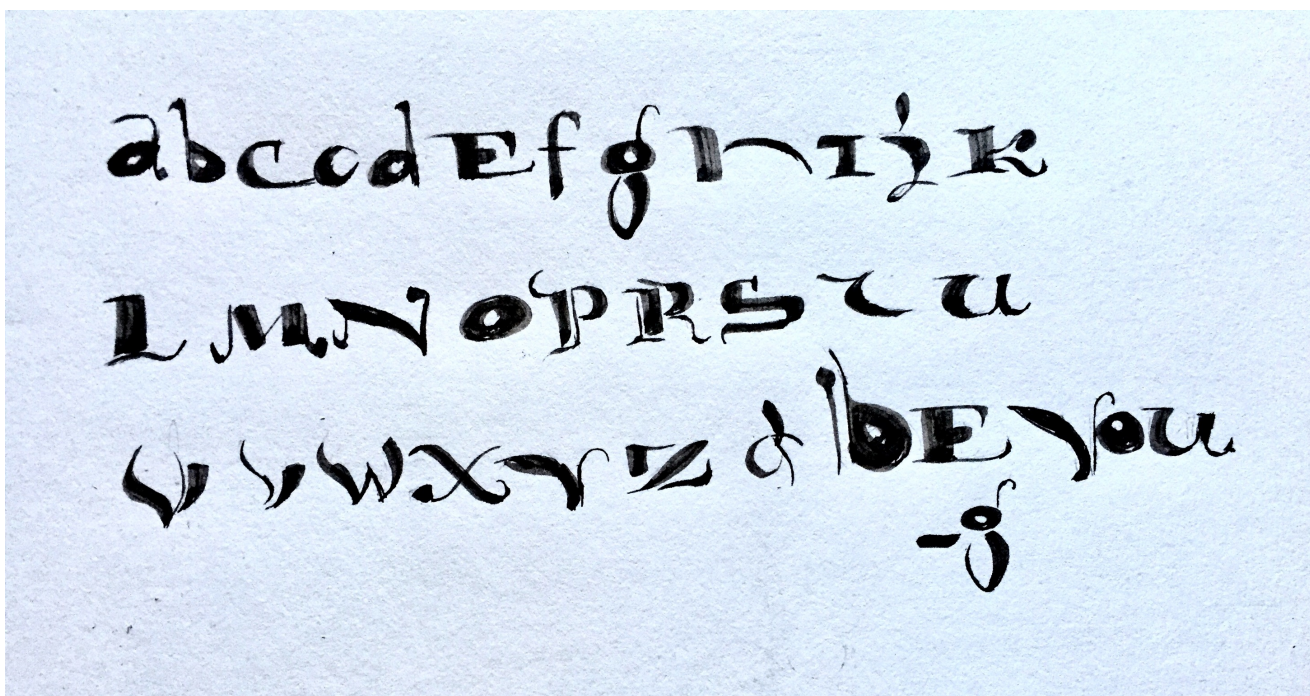 abccdEfghIjK
LMNOPRSTU
VVWXYZ & bE you
-g